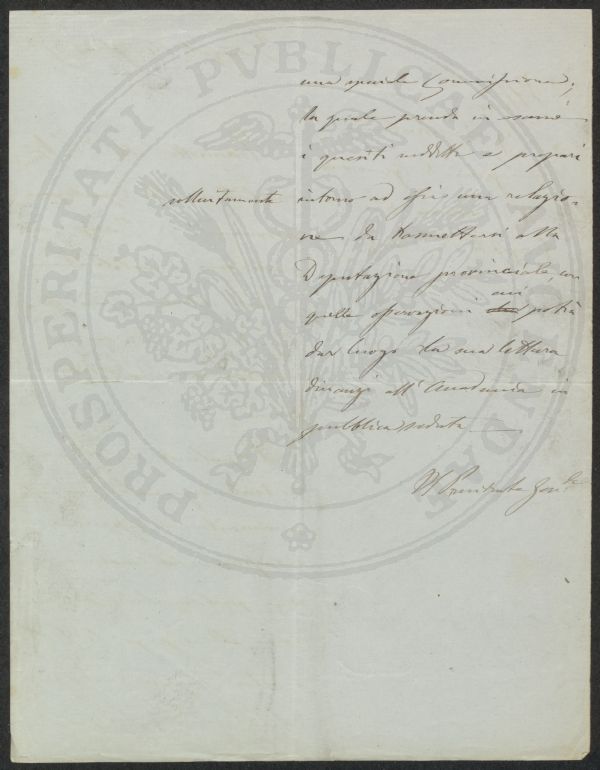 una speciale Commissione,
la quale prenda in esame
i quesiti suddetti e prepari
sollecitamente intorno ad essi una relazio-
ne da trasmettersi alla
Deputazione provinciale, con
quelle osservazioni cui potrà
dar luogo la sua lettura
dinanzi all'Accademia in
pubblica seduta
Il Presidente
PROSPERITATI PVBLICAE AVGENDAE